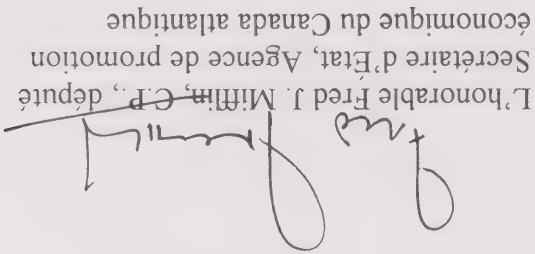 L'honorable Fred J. Mifflin, C.P., député
Secrétaire d'État, Agence de promotion
économique du Canada atlantique